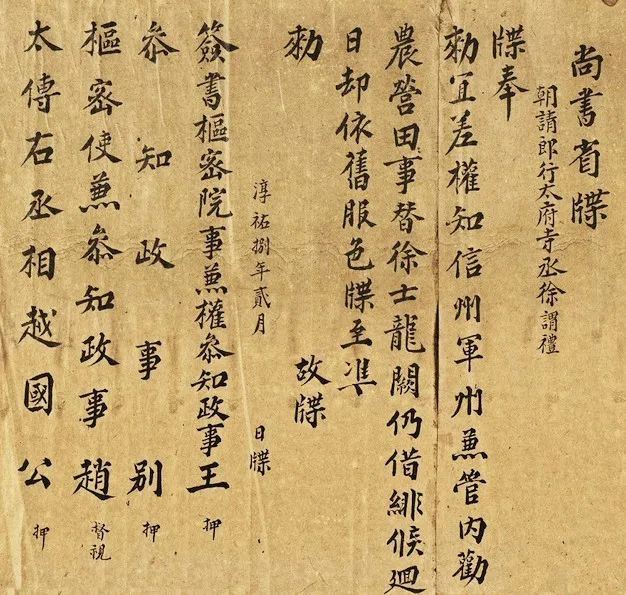 尚書省牒
朝請郎行太府寺丞徐謂禮
牒奉
勑宜差權知信州軍州兼管内勸
農營田事替徐士龍闕仍借緋候迴
日却依舊服色牒至準
勑
故牒
淳祐捌年貳月
日牒
簽書樞密院事兼權叅知政事王
押
叅知政事别
押
樞密使兼叅知政事趙
督視
太傅右丞相越國公
押